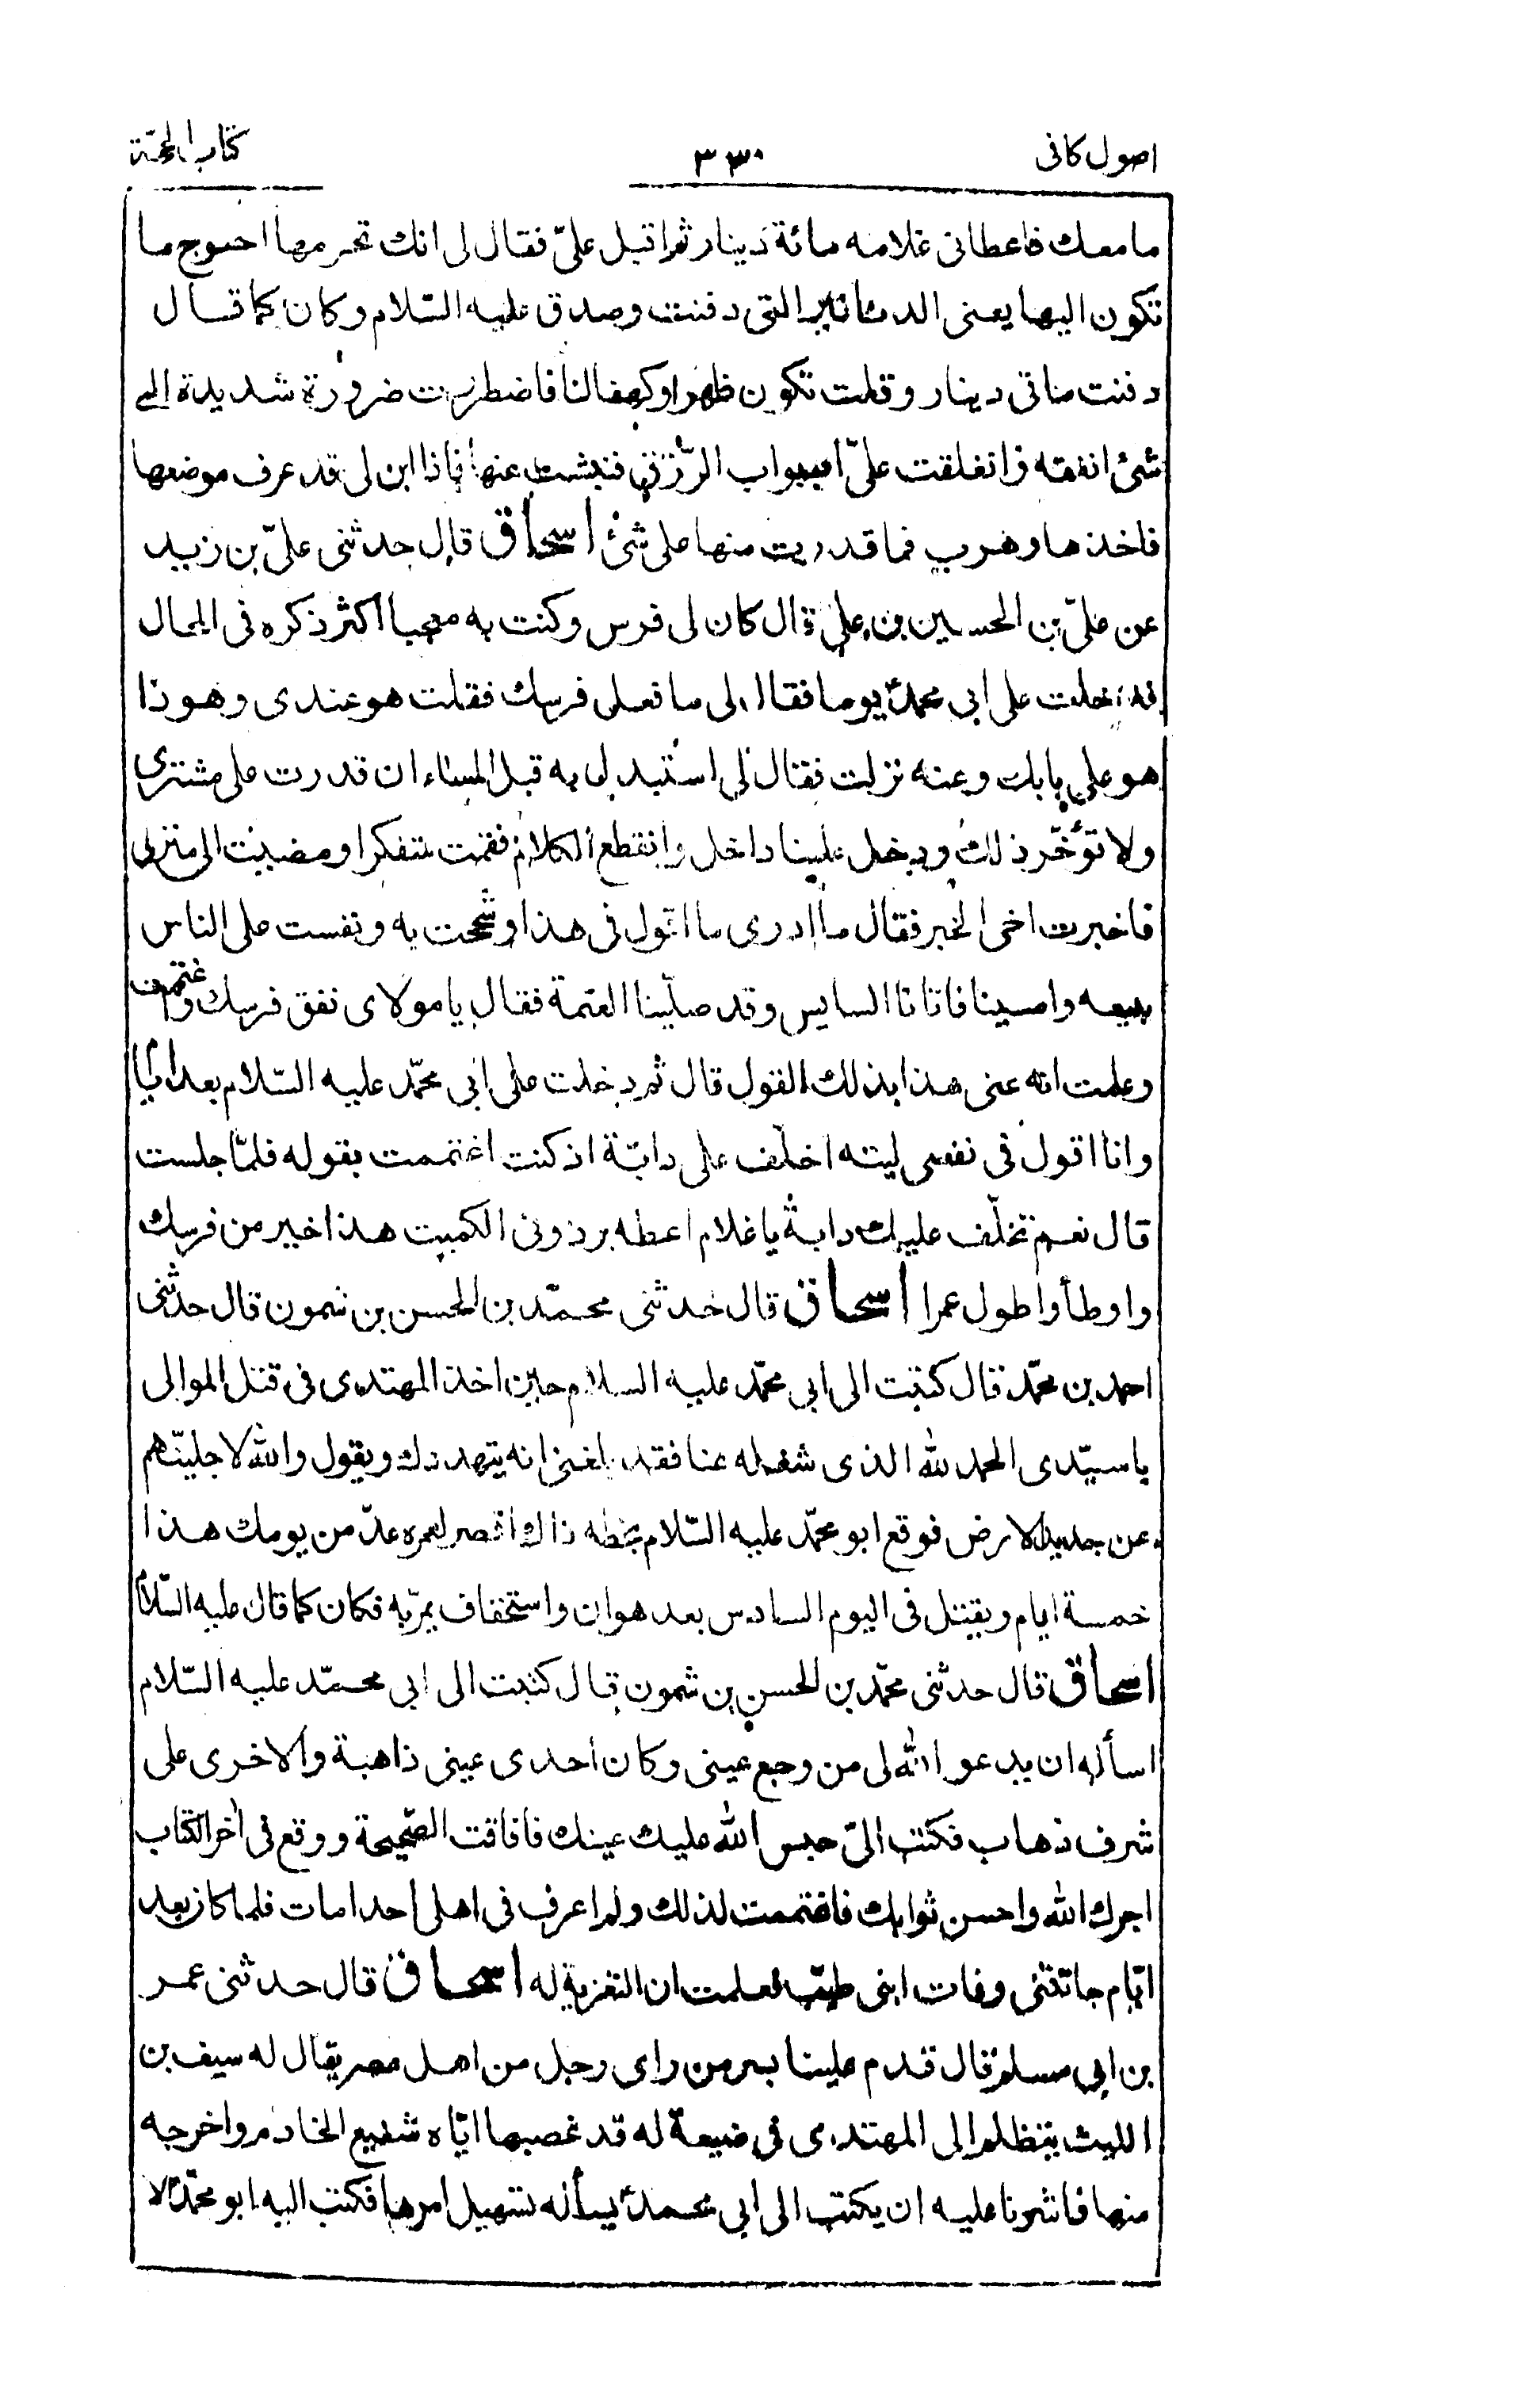 اصول كافى ٣٣٠ كتاب الحجّة
ما معك فاعطانى غلامه مائة دينار ثم اقبل علىّ فقال لى انك تحرمها احوج ما
تكون اليها يعنى الدنانير التى دفنت وصدق عليه السّلام وكان كما قال
دفنت مائتى دينار وقلت تكون ظهرا وكهفا لنا فاضطررت ضرورة شديدة الى
شئ انفقه وانغلقت علىّ ابواب الرّزق فنبشت عنها فاذا ابن لى قد عرف موضعها
فاخذها وهرب فما قدرت منها على شئ اسحاق قال حدثنى علىّ بن زيد
عن علىّ بن الحسين بن على قال كان لى فرس وكنت به معجبا اكثر ذكره فى المحال
فدخلت على ابى محمدؑ يوما فقال لى ما فعل فرسك فقلت هو عندى وهو ذا
هو على بابك وعنه نزلت فقال لى استبدل به قبل المساء ان قدرت على مشترى
ولا تؤخّر ذلك ودخل علينا داخل وانقطع الكلام فقمت متفكرا ومضيت الى منزلى
فاخبرت اخى الخبر فقال ما ادرى ما اقول فى هذا وشححت به ونفست على الناس
ببيعه وامسينا فاتانا السايس وقد صلّينا العتمة فقال يا مولاى نفق فرسك واغتممت
وعلمت انه عنى هذا بذلك القول قال ثم دخلت على ابى محمّد عليه السّلام بعد ايام
وانا اقول فى نفسى ليته اخلف على دابّة اذ كنت اغتممت بقوله فلمّا جلست
قال نعم نخلّف عليك دابة يا غلام اعطه برذونى الكميت هذا خير من فرسك
واوطأ واطول عمرا اسحاق قال حدثنى محمّد بن الحسن بن شمون قال حدثنى
احمد بن محمّد قال كتبت الى ابى محمّد عليه السلام حين اخذ المهتدى فى قتل الموالى
يا سيّدى الحمد لله الذى شغله عنا فقد بلغنى انه يتهددك ويقول والله لاجلينّهم
عن جديد الارض فوقع ابو محمّد عليه السّلام بخطه ذاك اقصر لعمره عدّ من يومك هذا
خمسة ايام ويقتل فى اليوم السادس بعد هوان واستخفاف يمرّ به فكان كما قال عليه السّلام
اسحاق قال حدثنى محمّد بن الحسن بن شمون قال كتبت الى ابى محمّد عليه السّلام
اسأله ان يدعو الله لى من وجع عينى وكان احدى عينى ذاهبة والاخرى على
شرف ذهاب فكتب الىّ حبس الله عليك عينك فافاقت الصّحيحة ووقع فى اخر الكتاب
اجرك الله واحسن ثوابك فاغتممت لذلك ولم اعرف فى اهلى احدا مات فلما كان بعد
ايّام جائتنى وفات ابنى طيّب فعلمت ان التعزية له اسحاق قال حدثنى عمر
بن ابى مسلم قال قدم علينا بسر من راى رجل من اهل مصر يقال له سيف بن
الليث يتظلم الى المهتدى فى ضيعة له قد غصبها ايّاه شفيع الخادم واخرجه
منها فاشرنا عليه ان يكتب الى ابى محمدؑ يسأله تسهيل امرها فكتب اليه ابو محمّدؑ لا